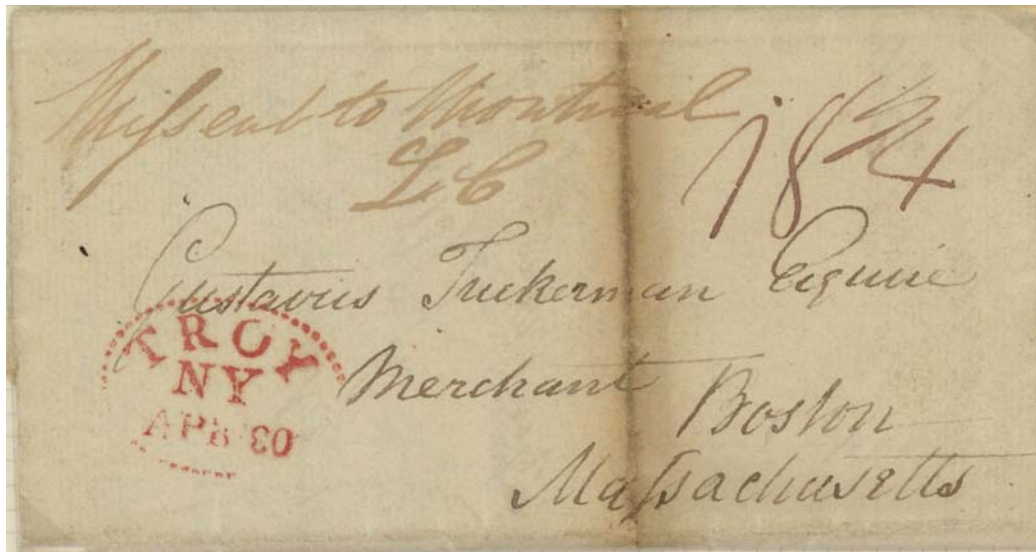 Missent to Montreal
LC
18 3/4
Gustavus Tuckerman Esquire
Merchant
Boston
Massachusetts
TROY
NY
APR 30